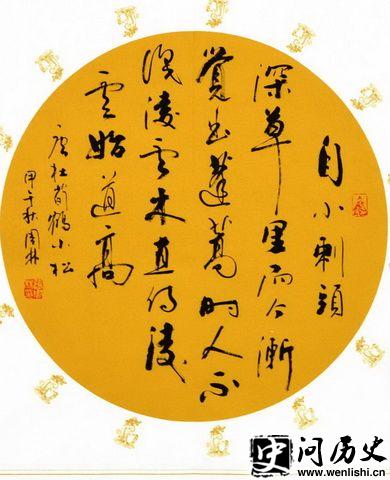 自小刺頭
深草里而今漸
覺出蓬蒿时人不
识凌雲木直待凌
雲始道高
唐杜荀鶴小松
甲午秋周林
史 问历史
www.wenlishi.cn